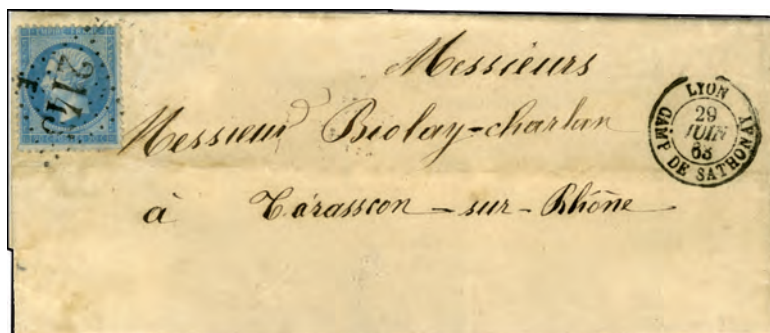 EMPIRE FRANC
2145
Messieurs
Messieur Biolay-charlan
à Tarasscon-sur-Rhône
LYON
29
JUIN
63
CAMP DE SATHONAY